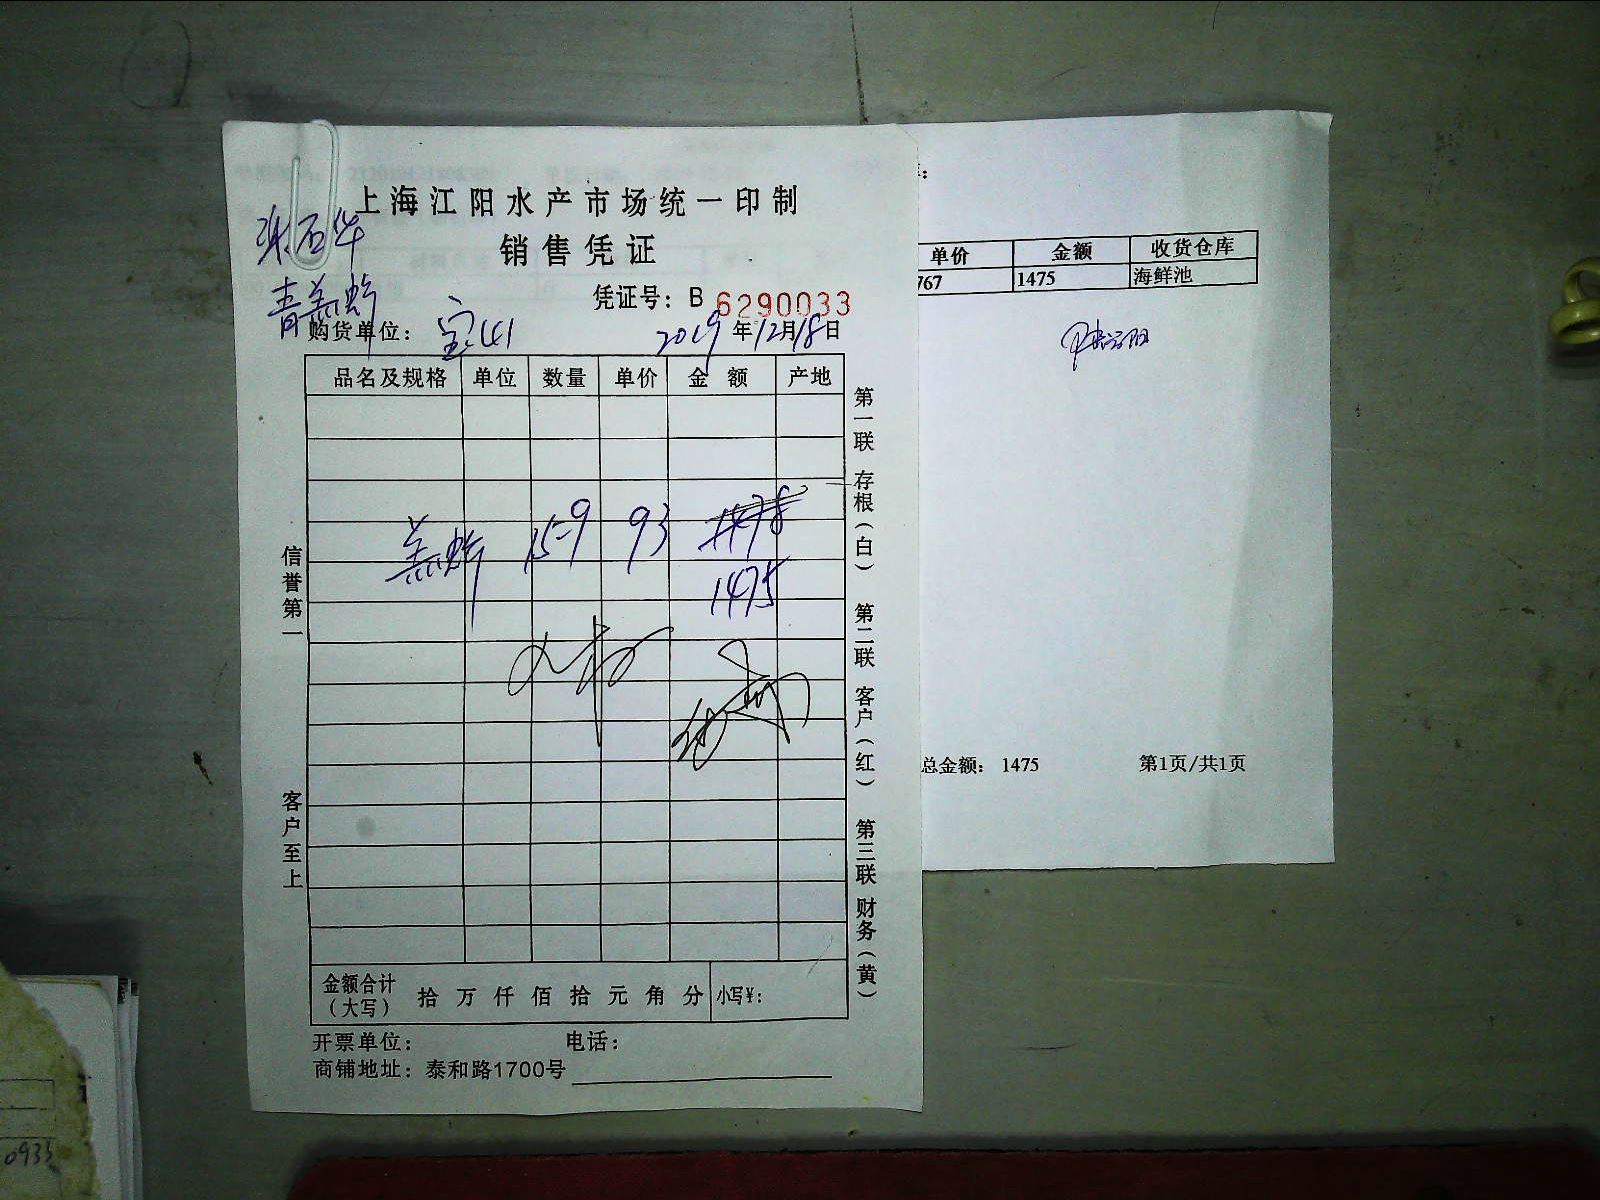 上海江阳水产市场统一印制
销售凭证
凭证号：B 6290033
购货单位：宝山 2019年12月18日
品名及规格 单位 数量 单价 金额 产地
15-9 93 1478
1475
信誉第一
客户至上
第一联 存根（白） 第二联 客户（红） 第三联 财务（黄）
金额合计（大写） 拾 万 仟 佰 拾 元 角 分 小写¥：
开票单位： 电话：
商铺地址：泰和路1700号
单价 金额 收货仓库
767 1475 海鲜池
总金额： 1475 第1页/共1页
0933